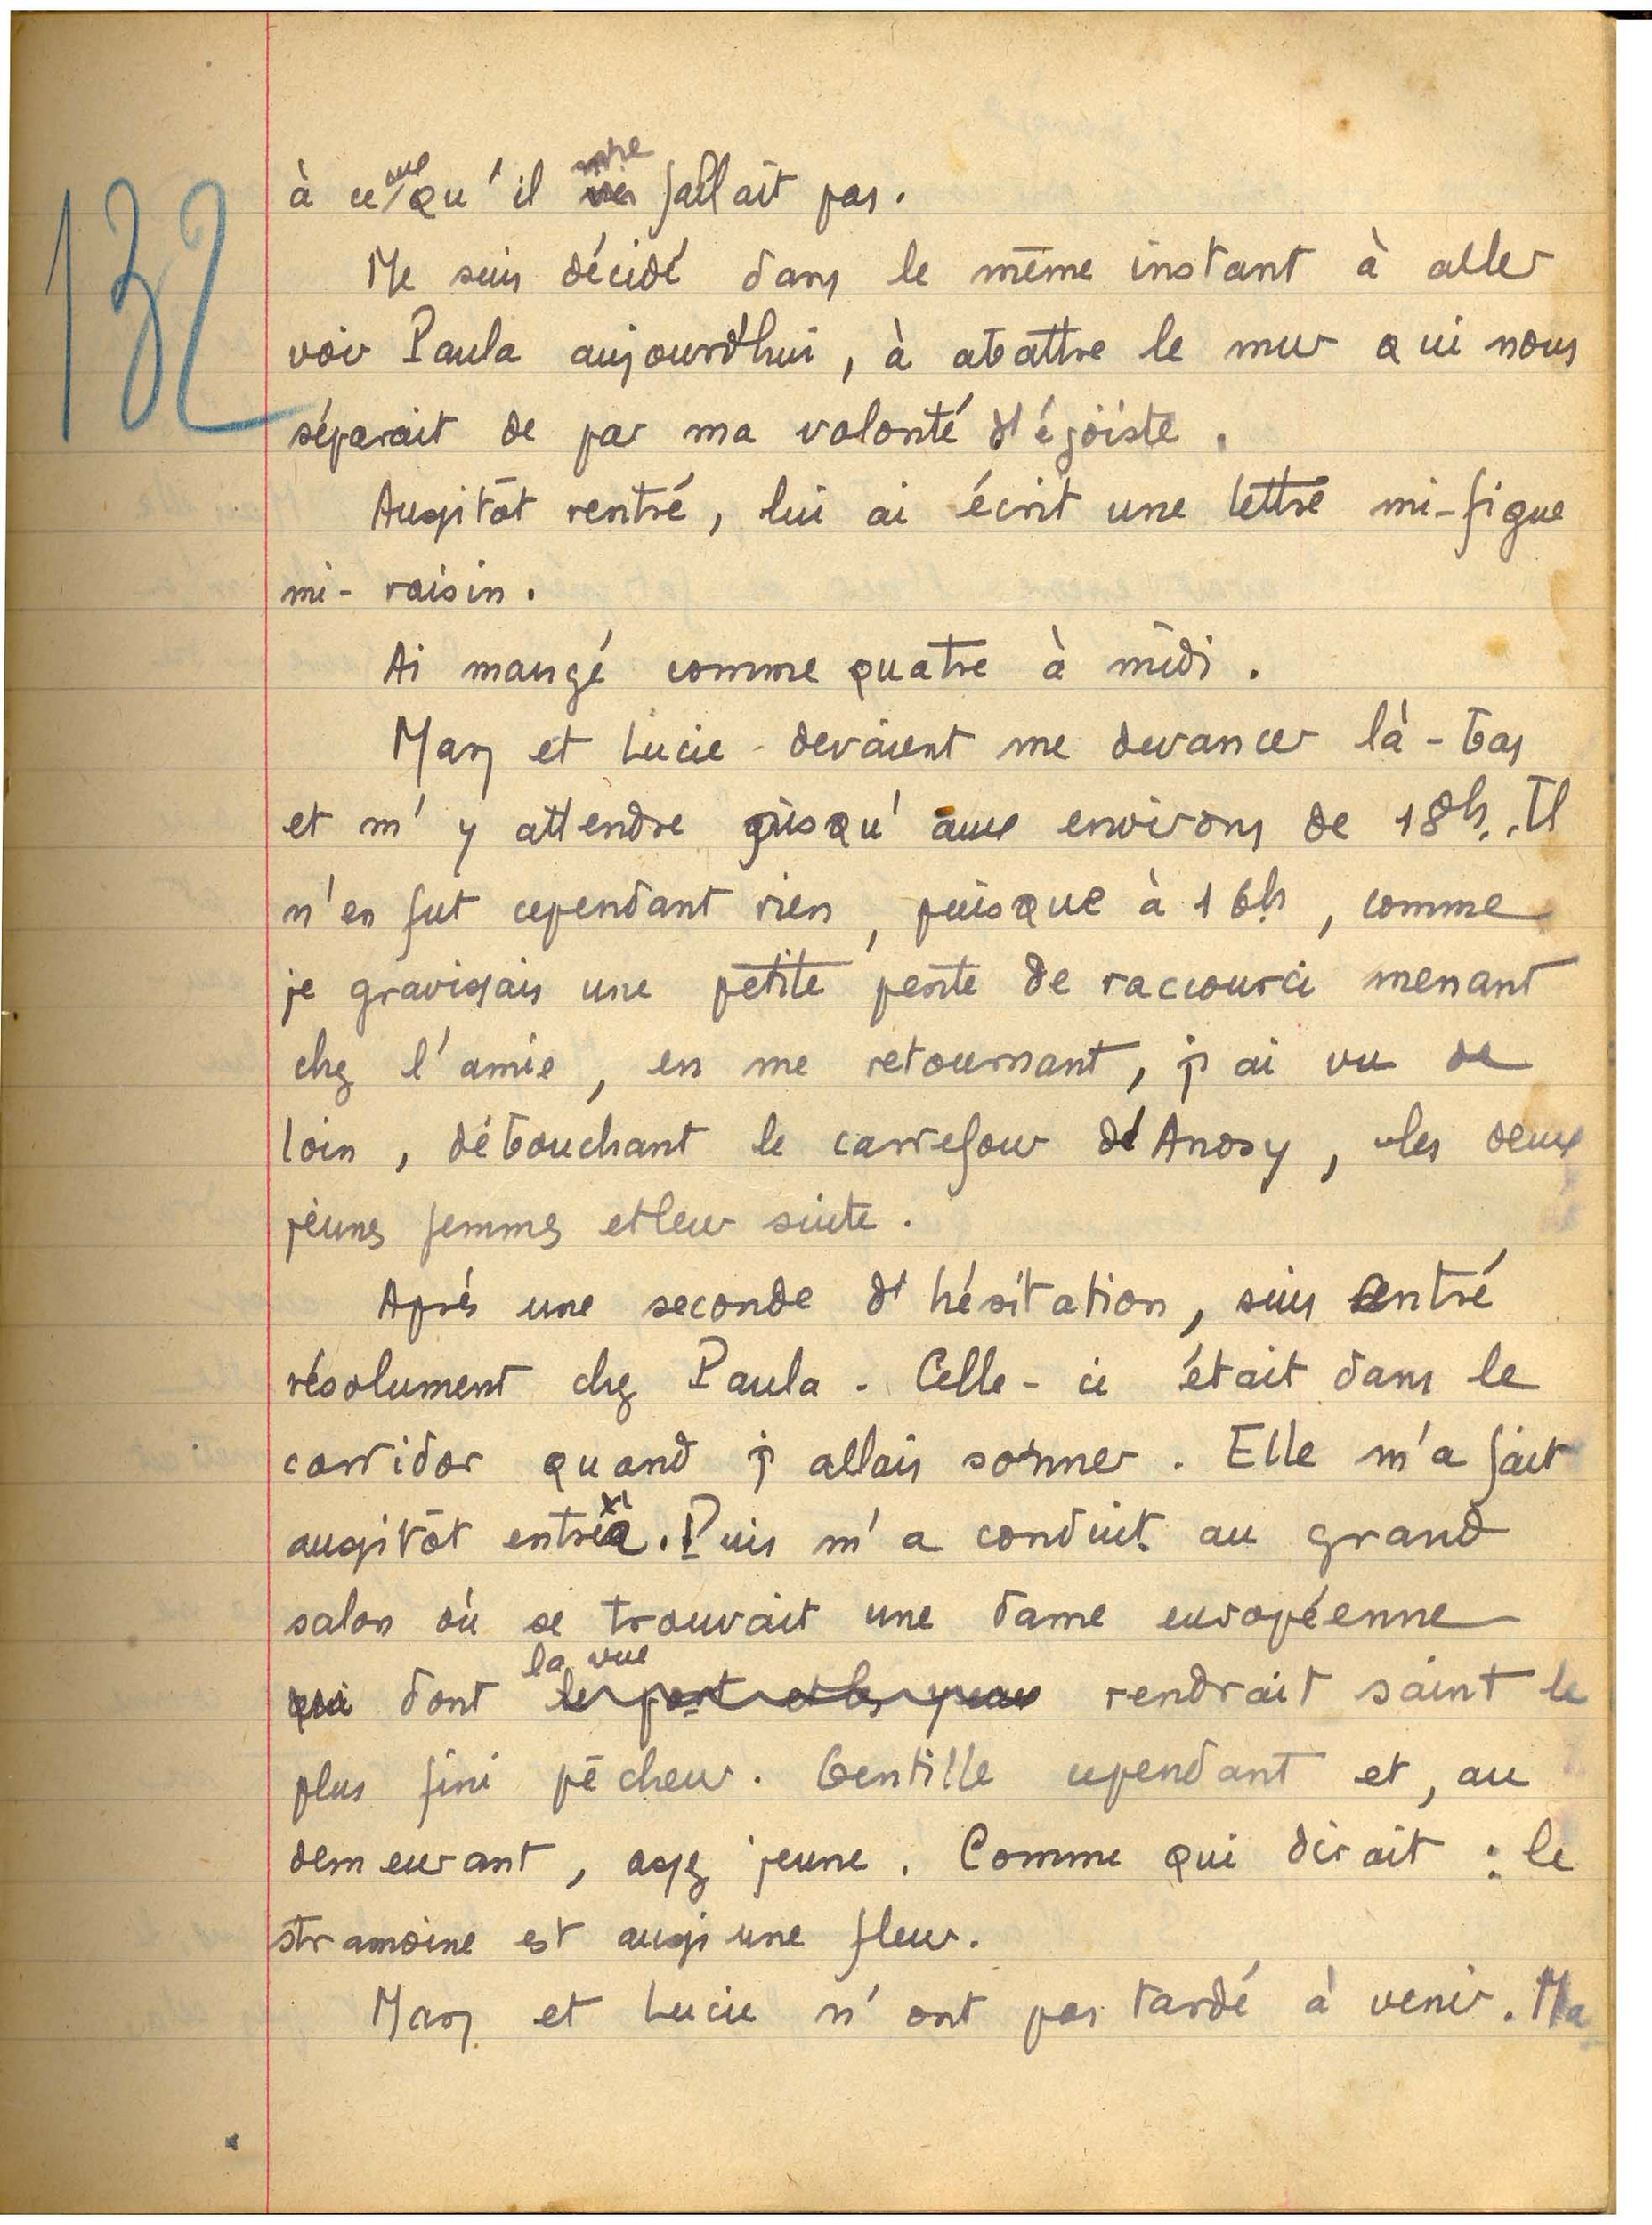 132
à ce que qu'il ne fallait pas.
Me suis décidé dans le même instant à aller
voir Paula aujourd'hui, à abattre le mur qui nous
séparait de par ma volonté d'égoïste.
Aussitôt rentré, lui ai écrit une lettre mi-figue
mi-raisin.
Ai mangé comme quatre à midi.
Mary et Lucie devaient me devancer là-bas
et m'y attendre jusqu'aux environs de 18h. Il
n'en fut cependant rien, puisque à 16h, comme
je gravissais une petite pente de raccourci menant
chez l'amie, en me retournant, j'ai vu de
loin, débouchant le carrefour d'Anosy, les deux
jeunes femmes et leur suite.
Après une seconde d'hésitation, suis entré
résolument chez Paula. Celle-ci était dans le
corridor quand j'allais sonner. Elle m'a fait
aussitôt entrer. Puis m'a conduit au grand
salon où se trouvait une dame européenne
la vue
qui dont le port et les yeux rendrait saint le
plus fini pêcheur. Gentille cependant et, au
demeurant, assez jeune. Comme qui dirait : le
stramoine est aussi une fleur.
Mary et Lucie n'ont pas tardé à venir. Ma